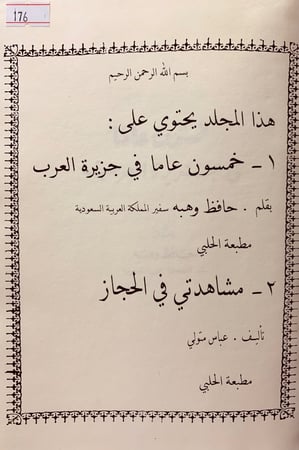 176
بسم الله الرحمن الرحيم
هذا المجلد يحتوي على :
١ - خمسون عاما في جزيرة العرب
بقلم . حافظ وهبه سفير المملكة العربية السعودية
مطبعة الحلبي
٢ - مشاهدتي في الحجاز
تأليف . عباس متولي
مطبعة الحلبي